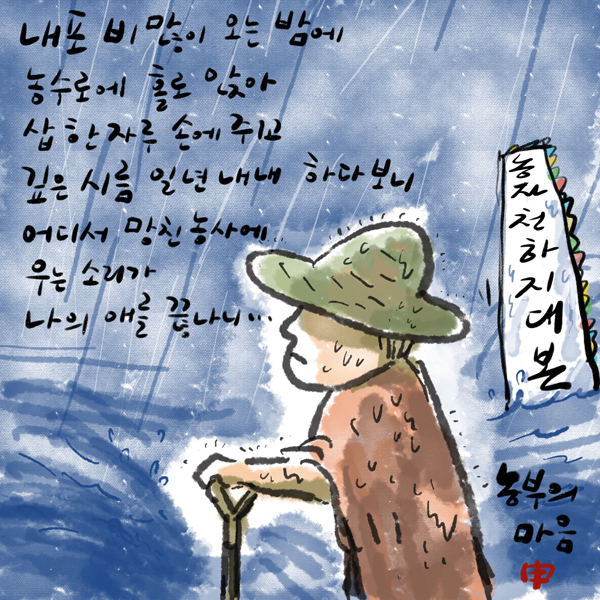 내포 비 많이 오는 밤에
농수로에 홀로 앉아
삽 한자루 손에 쥐고
깊은 시름 일년내내 하다보니
어디서 망친농사에
우는 소리가
나의 애를 끊나니...
농자천하지대본
농부의
마음
申